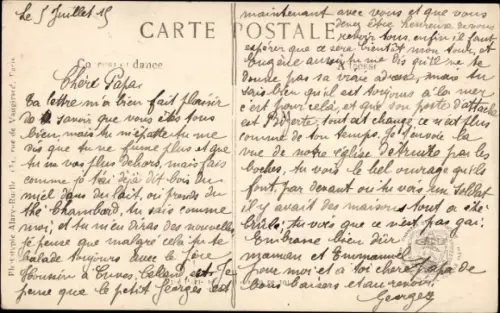 Le 5 Juillet 15
CARTE POSTALE
Chère Papa
Ta lettre m'a bien fait plaisir
de savoir que vous êtes tous
bien mais tu m'épatte tu me
dis que tu ne fume plus et que
tu ne vas plus dehors, mais fais
comme je t'ai déjà dit bois du
miel dans du lait, ou prends du
thé Chambard, tu sais comme
moi, et tu me diras des nouvelles
je pense que malgré cela tu te
balade toujours avec le Père
pense que le petit Georges est
Phototypie Rue de Vaugirard, Paris
maintenant avec vous et que vous
devez être heureuse de vous
revoir tous, enfin il faut
espérer que ce sera bientôt mon tour, et
Eugène aussi tu me dis qu'il ne te
donne pas sa vraie adresse, mais tu
sais bien qu'il est toujours à la mer
c'est pour cela, et que son porte d'attache
est Bizerte, tout at changé ce n'est plus
comme de ton temps. Je t'envoie la
vue de notre église par les
boches, tu vois le bel ouvrage qu'ils
font, par devant ou tu vois un soldat
il y avait des maisons tout a été
brûlé; tu vois que ce n'est pas gai;
Embrasse bien
maman et Emmanuel
pour moi et a toi chere papa de
bons baisers et au revoir.
Georges